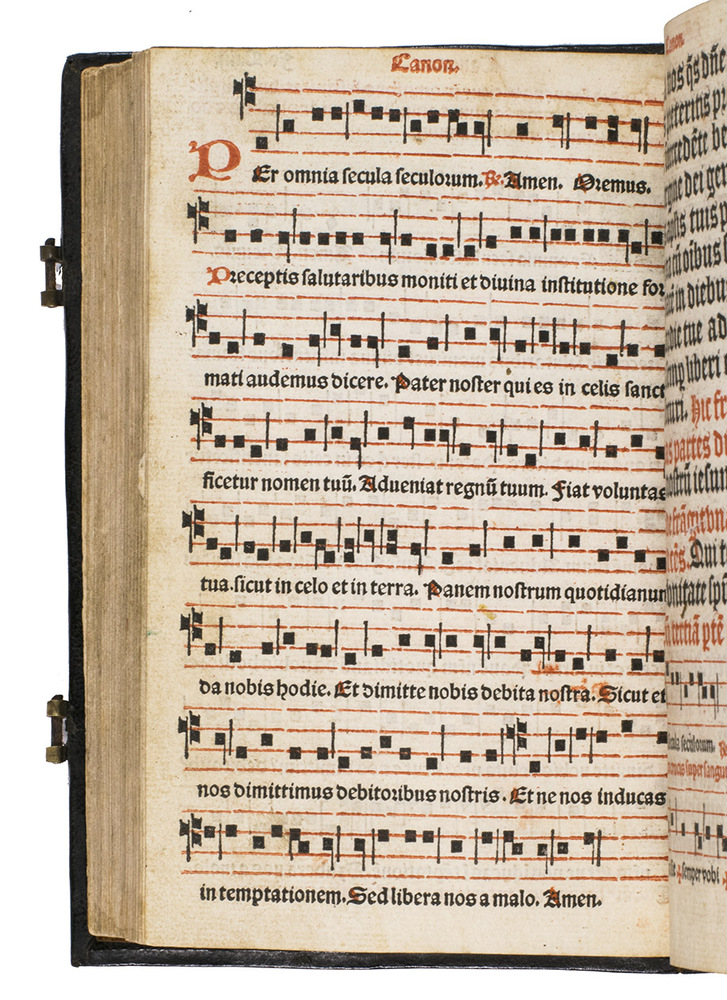 Canon.
PEr omnia secula seculorum. ℟. Amen. Oremus.
Preceptis salutaribus moniti et diuina institutione for
mati audemus dicere. Pater noster qui es in celis sanct
ficetur nomen tuū. Adueniat regnū tuum. Fiat voluntas
tua. sicut in celo et in terra. Panem nostrum quotidianum
da nobis hodie. Et dimitte nobis debita nostra. Sicut et
nos dimittimus debitoribus nostris. Et ne nos inducas
in temptationem. Sed libera nos a malo. Amen.
Canon.
nos q̄s dn̄e
dei gen
tuis p
oībus
in diebus
tue ad
liberi
Hic fr
partes
iesum
Qui t
tertiā ptē
seculorum.
super sangu
semper vobi